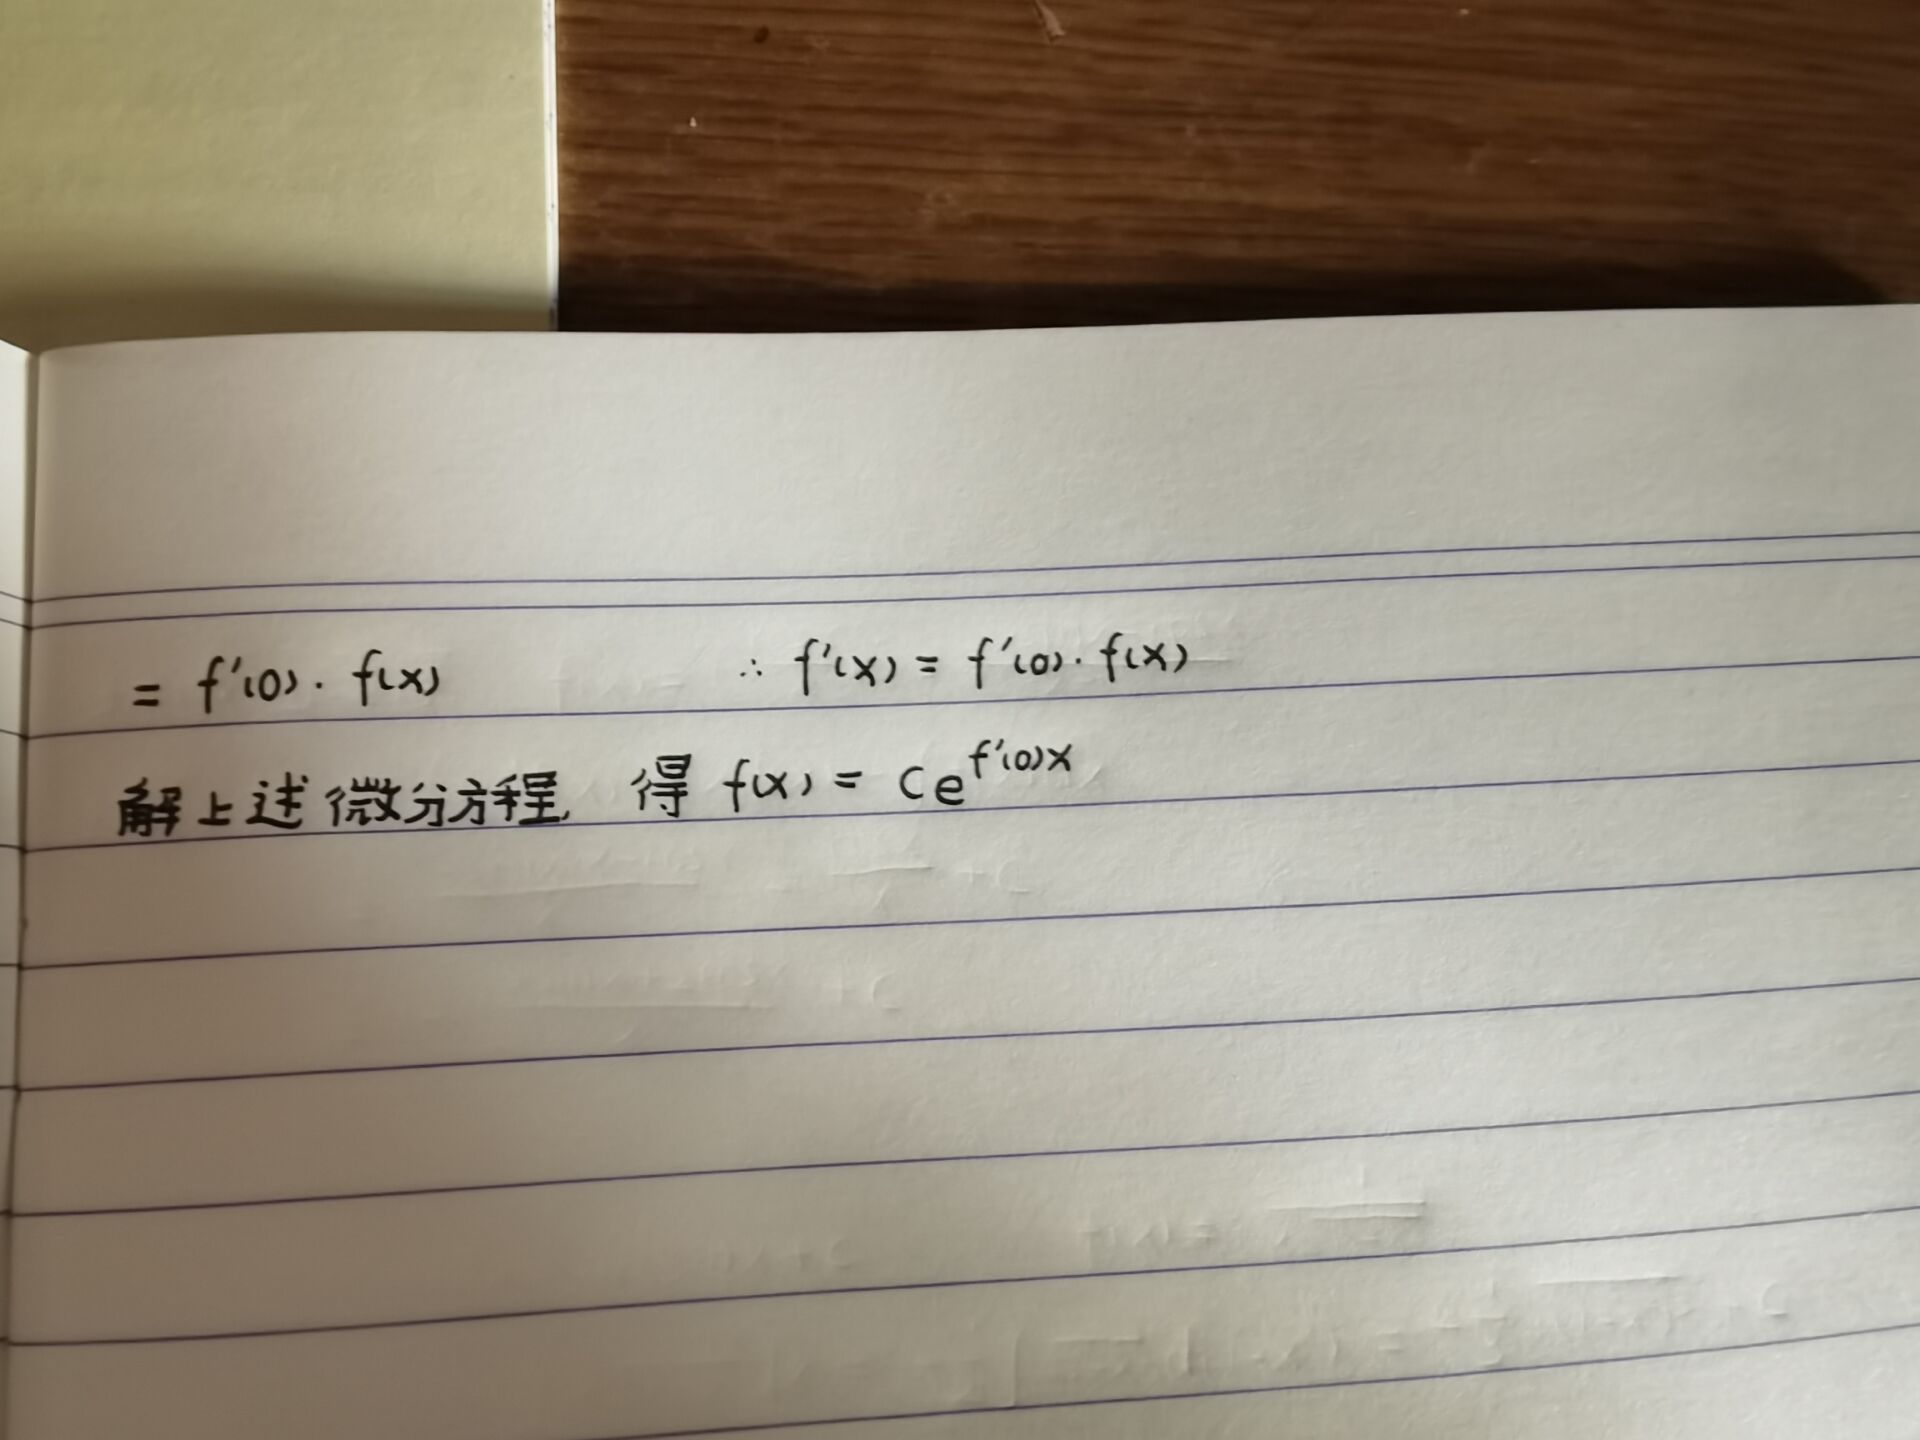 = f'(0) · f(x) ∴ f'(x) = f'(0) · f(x)
解上述微分方程, 得 f(x) = Ce^{f'(0)x}